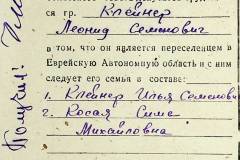 ся гр. Клейнер
Леонид Семенович
в том, что он является переселенцем в
Еврейскую Автономную область и с ним
следует его семья в составе:
1. Клейнер Илья Семенови
2. Косая Сима
Михайловна
Получил: